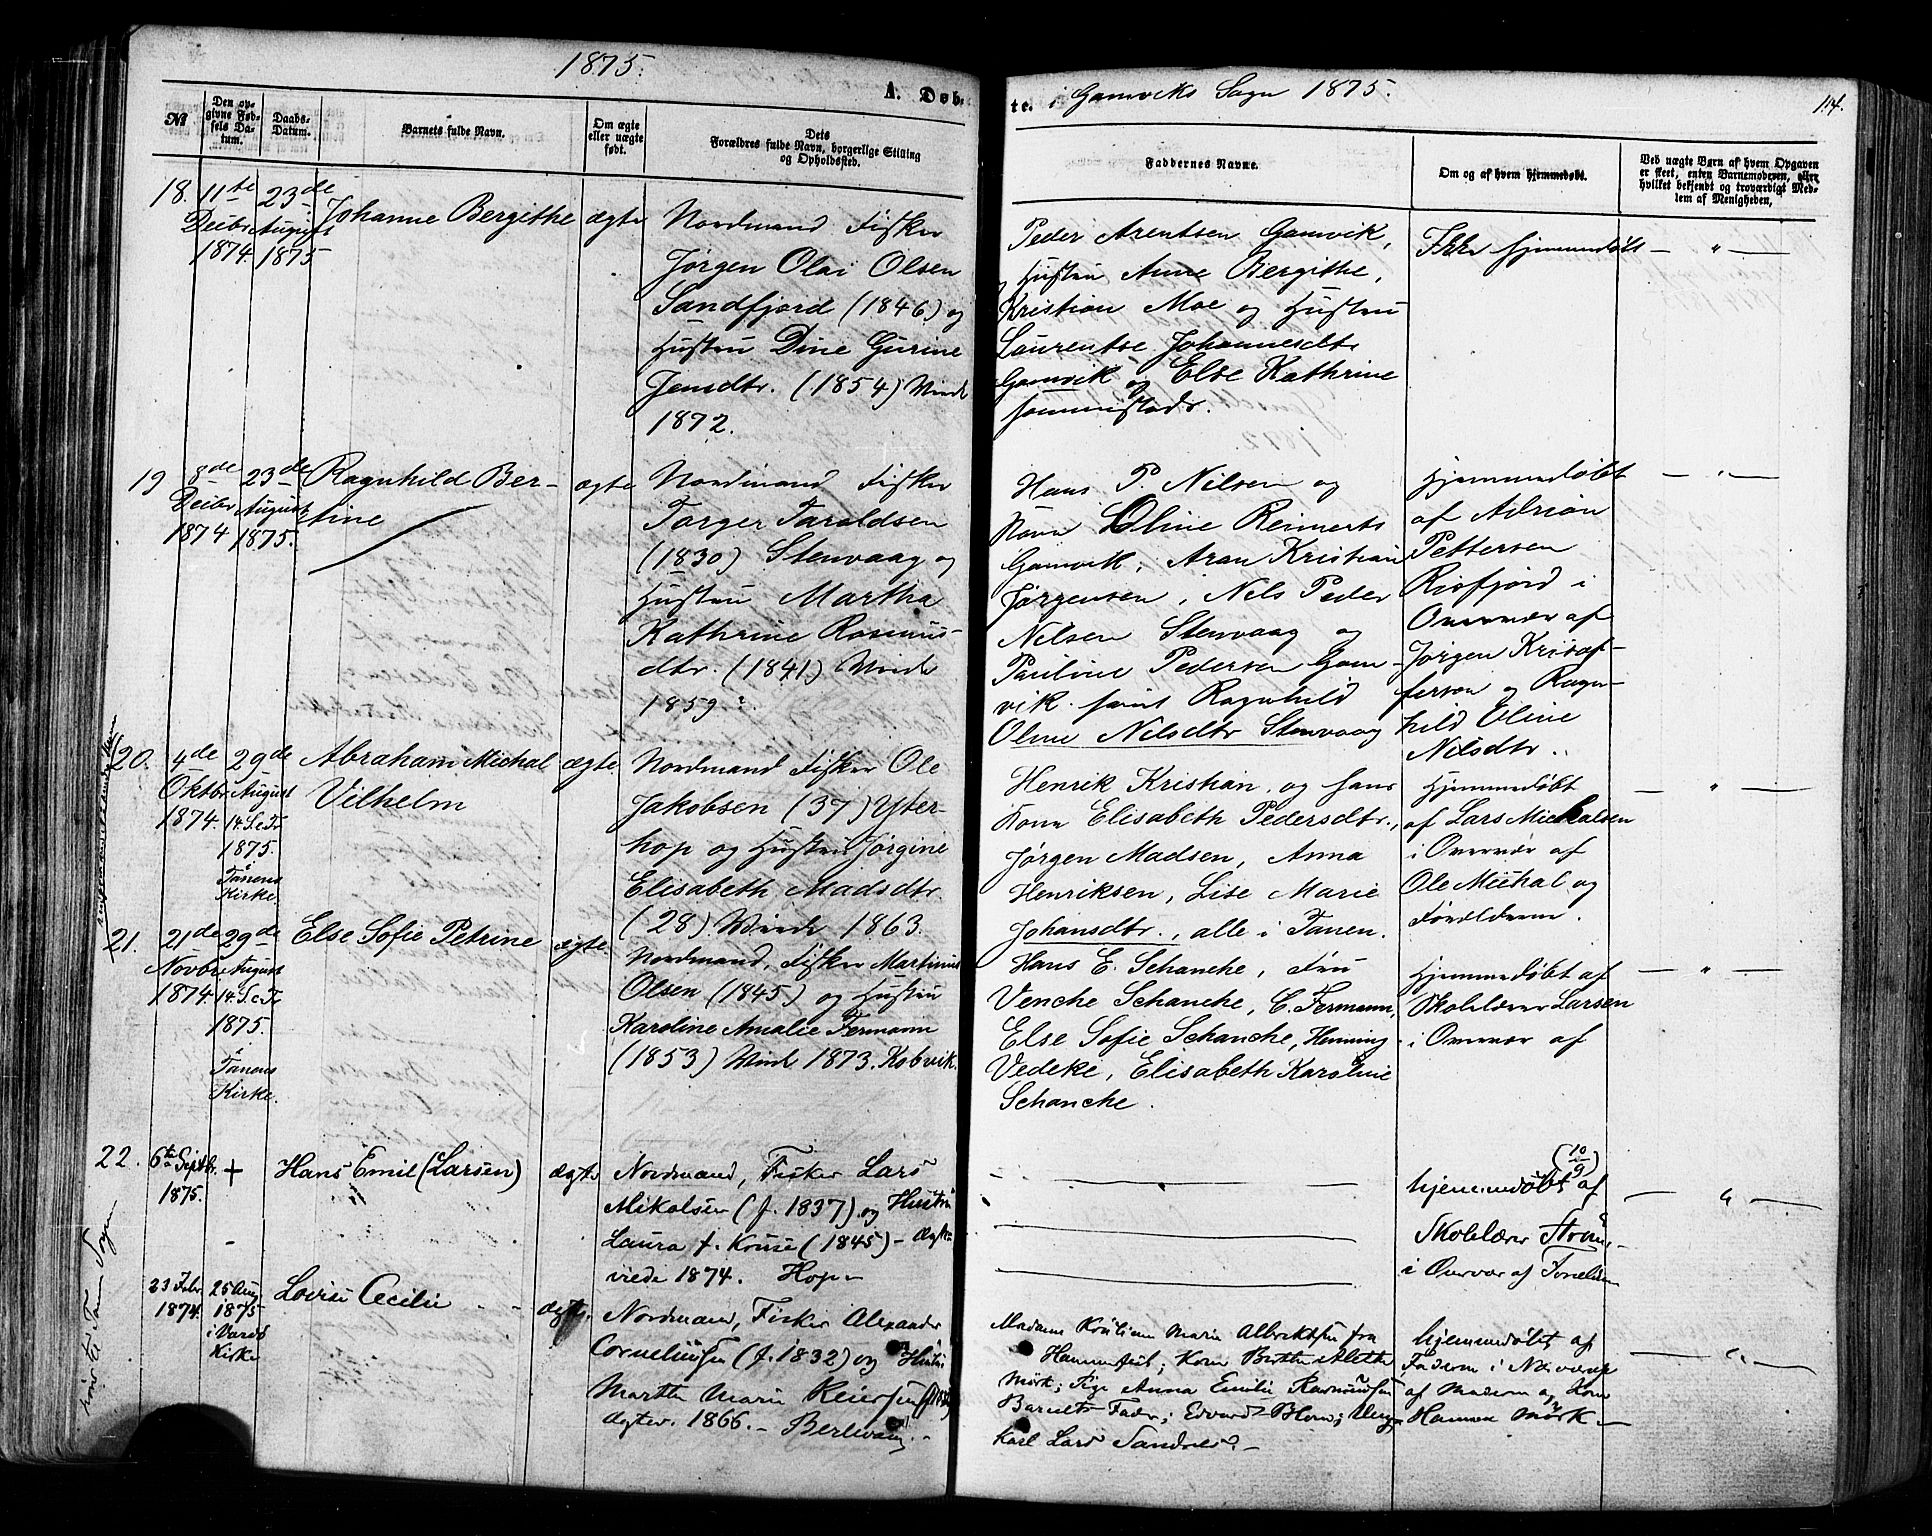 1875.
A. Døb-
№
Den op-
givne Fød-
sels Da-
tum.
Daabs-
Datum.
Barnets fulde Navn.
Om ægte
eller uægte
født.
Dets
Forældres fulde Navn, borgerlige Stilling
og Opholdssted.
18.
11te
Decbr
1874.
23de
August
1875
Johanne Bergithe
ægte
Nordmand Fisker
Jørgen Olai Olsen
Sandfjord (1846) og
Hustru Dine Gurine
Jensdtr. (1854) Viede
1872.
19
8de
Decbr
1874
23de
August
1875.
Ragnhild Ber-
tine
ægte
Nordmand Fisker
Torger Taroldsen
(1830) Stenvaag og
Hustru Martha
Kathrine Rasmus-
dtr. (1841) Viede
1859?
20.
4de
Oktbr
1874.
29de
August
14.S.e.Tr
1875.
i
Tanens
Kirke.
Abraham Michal
Vilhelm
ægte.
Nordmand Fisker Ole
Jakobsen (37) Yter-
hop og Hustru Jørgine
Elisabeth Madsdtr.
(28) Viede 1863.
21.
21de
Novbr
1874
29de
August
14.S.e.Tr
1875.
i
Tanens
Kirke.
Else Sofie Petrine
ægte.
Nordmand, Fisker Martinus
Olsen (1845) og Hustru
Karoline Amalie Fermann
(1853) Viede 1873. Kobvik.
22.
6te Septbr.
1875.
+
Hans Emil (Larsen)
ægte
Nordmand, Fisker Lars
Mikalsen (f. 1837) og Hustru
Laura f. Kruse (1845) –
viede 1874. Hop –
23 Febr
1874.
25 Aug
1875
i Vardö
Kirke
Lovise Cecilie
ægte.
Nordmand, Fisker Alexander
Corneliussen (f. 1832) og Hustru
Martha Marie Reiersen
ægtev. 1866. – Berlevaag. –
te. i Gamviks Sogn 1875.
114.
Faddernes Navne.
Om og af hvem hjemmedøbt.
Ved uægte Børn af hvem Opgaven
er skeet, enten Barnemoderen, eller
hvilket bekjendt og troværdigt Med-
lem af Menigheden.
Peder Arentsen Gamvik,
Hustru Anne Bergithe,
Kristian Moe og Hustru
Laurentse Johannesdtr
Gamvik og Else Kathrine
sammestedr.
Ikke hjemmedøbt
– " –
Hans P. Nilsen og
Kone Oline Reimerts
Gamvik, Aran Kristian
Jørgensen, Nels Peder
Nilsen Stenvaag og
Pauline Pedersen Gam-
vik samt Ragnhild
Oline Nilsdtr Stenvaag
Hjemmedøbt
af Adrian
Pettersen
Risfjord i
Overvær af
Jørgen Kristof-
fersen og Ragn-
hild Oline
Nilsdtr.
– " –
Henrik Kristian og hans
Kone Elisabeth Pedersdtr.,
Jørgen Madsen, Anna
Henriksen, Lise Marie
Johansdtr., alle i Tanen.
Hjemmedøbt
af Lars Michalsen
i Overvær af
Ole Michal og
Forældrene.
– " –
Hans E. Schanche, Fru
Venche Schanche, C. Fermann,
Else Sofie Schanche, Henning
Vedeke, Elisabeth Karoline
Schanche.
Hjemmedøbt af
Skolelærer Larsen
i Overvær af
– " –
(10/9)
hjemmedøbt af
Skolelærer
i Overvær af
– " –
Madame Maria Albrektsen fra
Hammerfest; Kone Berthe Alette
Mörk; Pige Anna Emilie Rasmussen
Barnets Fader; Edvard Blom; Ungk.
Karl Lars Sandnes. –
hjemmedøbt af
Faderen i Nærvær
af Moderen og Kone
Hansen Mörk. –
– " –